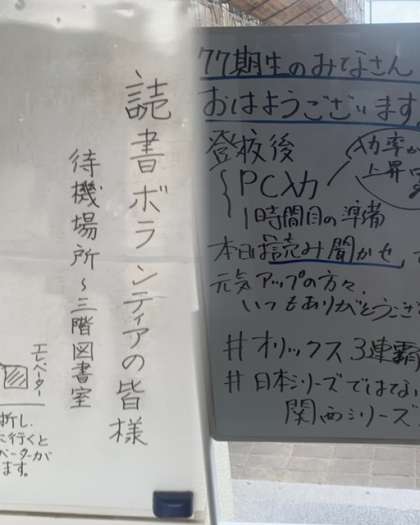 読書ボランティアの皆様
待機場所～三階図書室
エレベーター
折し、
に行くと
ベーターが
ます。
77期生のみなさん
おはようございます。
登校後
PC入力
1時間目の準備
入力率が
上昇
本日は読み聞かせ、
元気アップの方々、
いつもありがとうござ
#オリックス3連覇
#日本シリーズではない
関西シリーズ